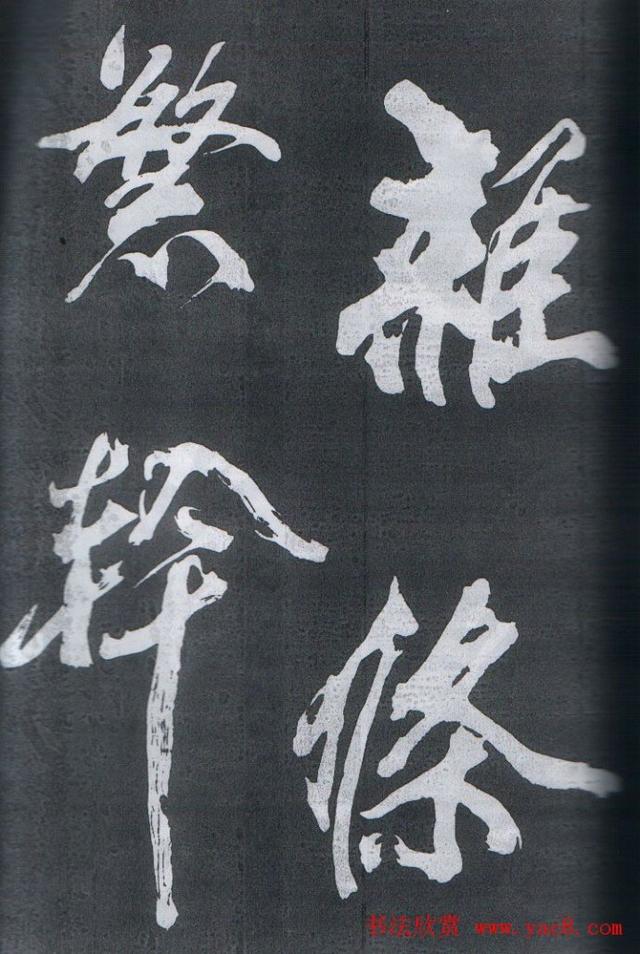 雜條
繁幹
书法欣赏 www.yac8.com